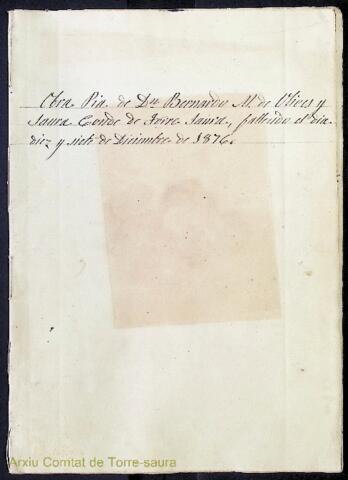 Obra Pia de Dn Bernardo M. de Olives y
Saura Conde de Torre Saura, falleció el dia
diez y siete de Diciembre de 1876.
Arxiu Comtat de Torre-saura